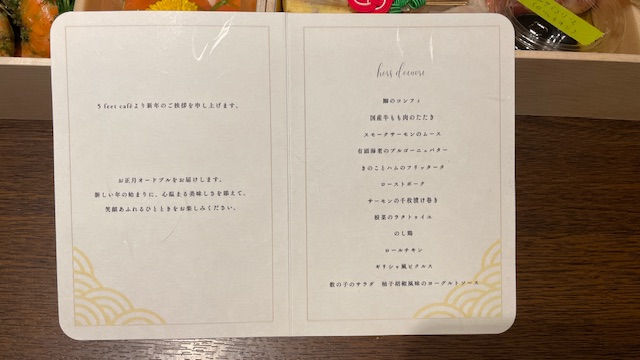 5 feet caféより新年のご挨拶を申し上げます。
お正月オードブルをお届けします。
新しい年の始まりに、心温まる美味しさを添えて。
笑顔あふれるひとときをお楽しみください。
hors d'oeuvre
鯛のコンフィ
国産牛もも肉のたたき
スモークサーモンのムース
有頭海老のブルゴーニュバター
きのことハムのフリッタータ
ローストポーク
サーモンの千枚漬け巻き
根菜のラタトゥイユ
のし鶏
ロールチキン
ギリシャ風ピクルス
数の子のサラダ 柚子胡椒風味のヨーグルトソース